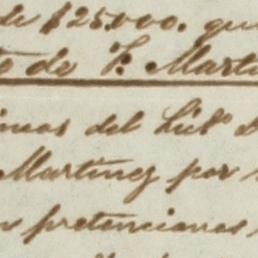 de $25.000. que
to de F. Marti
del Licdo
Martinez por
pretenciones